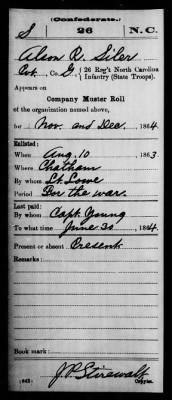 (Confederate.)
S 26 N.C.
Alson R. Siler
Pvt., Co. G, 26 Reg't North Carolina
Infantry (State Troops).
Appears on
Company Muster Roll
of the organization named above,
for Nov. and Dec., 1864
Enlisted:
When Aug. 10, 1863.
Where Chatham
By whom Lt. Lowe
Period For the war.
Last paid:
By whom Capt. Young
To what time June 30, 1864.
Present or absent Present
Remarks:
Book mark:
J.P. Stirewalt
(642) Copyist.